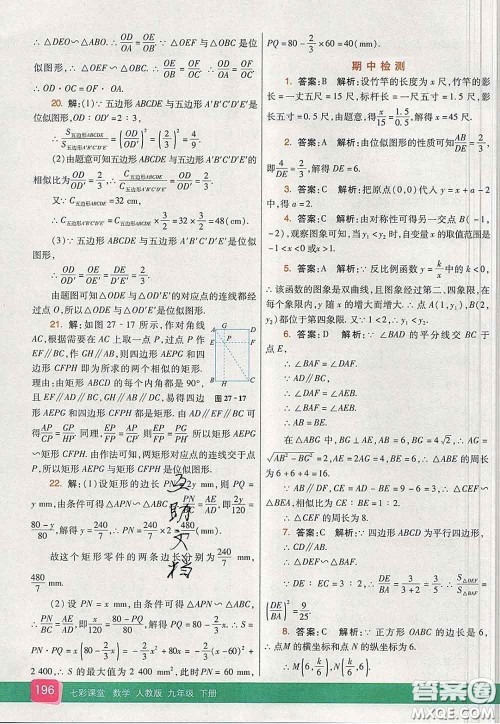 ∴ △DEO∽△ABO. ∴ OD/OA = OE/OB. ∵ △OEF 与 △OBC 是位
似图形, ∴ △OEF∽△OBC. ∴ OE/OB = OF/OC. ∴ OD/OA = OF/OC.
∴ OD·OC = OF·OA.
20. 解:(1)∵ 五边形 ABCDE 与五边形 A'B'C'D'E' 是位
似图形, OD∶OD' = 2∶3,
∴ S五边形ABCDE/S五边形A'B'C'D'E' = (OD/OD')² = (2/3)² = 4/9.
(2)由题意可知五边形 ABCDE 与五边形 A'B'C'D'E'
的相似比为 OD/OD' = 2/3, ∴ C五边形ABCDE/C五边形A'B'C'D'E' = 2/3.
又∵ C五边形ABCDE = 32, ∴ C五边形A'B'C'D'E' = 3/2 × 32 = 48(cm).
(3)∵ 五边形 ABCDE 与五边形 A'B'C'D'E' 是位似图形,
∴ OD/OD' = OE/OE' = DE/D'E' = 2/3.
由题图可知 △ODE 与 △OD'E' 的对应点的连线都经
过点 O, ∴ △ODE 与 △OD'E' 是位似图形.
21. 解:如图 27-17 所示,作对角线
AC,根据需要在 AC 上取一点 P,过点 P 作
EF∥BC,作 GH∥AB,则四边形 AEPG
和四边形 CFPH 即为所求的两个相似的矩形.
理由:由矩形 ABCD 的每个内角都是 90°,
且 EF∥AD∥BC, GH∥AB,易得四边
形 AEPG 和四边形 CFPH 是矩形. 由 AD∥EF∥BC 可
得 AP/CP = GP/HP. 同理, AP/PC = EP/PF. ∴ GP/PH = EP/PF. ∴ 矩形 AEPG 与矩形
CFPH 相似. 由作法可知,两矩形对应点的连线交于点
P,所以矩形 AEPG 与矩形 CFPH 是位似图形.
图 27-17
22. 解:(1)设矩形的边长 PN = 2y mm,则 PQ =
y mm,由条件可得 △APN∽△ABC, ∴ PN/BC = AE/AD,即 2y/120 =
(80-y)/80,解得 y = 240/7, ∴ PN = 240/7 × 2 = 480/7(mm).
故这个矩形零件的两条边长分别为 240/7 mm,
480/7 mm.
(2)设 PN = x mm,由条件可得 △APN∽△ABC,
∴ PN/BC = AE/AD,即 x/120 = (80-PQ)/80,解得 PQ = 80 - 2/3x.
∴ S = PN·PQ = x(80 - 2/3x) = -2/3x² + 80x = -2/3(x-60)² +
2 400, ∴ S 的最大值为 2 400 mm²,此时 PN = 60 mm,
PQ = 80 - 2/3 × 60 = 40(mm).
期中检测
1. 答案:B 解析:设竹竿的长度为 x 尺,竹竿的影
长 = 一丈五尺 = 15 尺,标杆长 = 一尺五寸 = 1.5 尺,影
长五寸 = 0.5 尺, ∴ x/15 = 1.5/0.5,解得 x = 45 尺.
2. 答案:A 解析:由位似图形的性质可知 AB/DE = 2/3,
即 4/DE = 2/3,解得 DE = 6.
3. 答案:C 解析:把原点(0,0)代入 y = x + a - 2
中,得 a = 2.
4. 答案:C 解析:由对称性可得另一交点 B(-1,
-2),观察图象可知,当 y₁ < y₂ 时,自变量 x 的取值范围是
-1 < x < 0 或 x > 1.
5. 答案:C 解析:∵ 反比例函数 y = k/x 中的 k < 0,
∴ 该函数的图象是双曲线,且图象经过第二、四象限,在
每个象限内, y 随 x 的增大而增大. ∴ 点 A(1,y₁),B(2,
y₂)都位于第四象限. 又∵ 1 < 2, ∴ y₁ < y₂.
6. 答案:D 解析:∵ ∠BAD 的平分线交 BC 于
点 E,
∴ ∠BAF = ∠DAF.
∵ AD∥BC,
∴ ∠DAF = ∠BEA.
∴ ∠BAF = ∠BEA.
∴ BE = AB = 6. ∵ BG⊥AE, ∴ AG =
√(AB²-BG²) = 2. ∴ AE = 2AG = 4. ∴ △ABE 的周长
为 6+6+4 = 16.
∵ CE = BC - BE = AD - BE = 9-6 = 3, △CEF∽
△BEA,相似比为 CE∶BE = 1∶2,
∴ △CEF 的周长为 8.
7. 答案:C 解析:∵ 四边形 ABCD 为平行四边形,
∴ AB = CD.
∵ DE∶EC = 3∶2, ∴ DE/AB = DE/DC = 3/5, ∴ S△DEF/S△ABF =
(DE/AB)² = 9/25.
8. 答案:C 解析:∵ 正方形 OABC 的边长为 4,
∴ 点 M 的横坐标和点 N 的纵坐标为 4.
互助文档
196 七彩课堂 数学 人教版 九年级 下册
答案圈
MXQE.COM